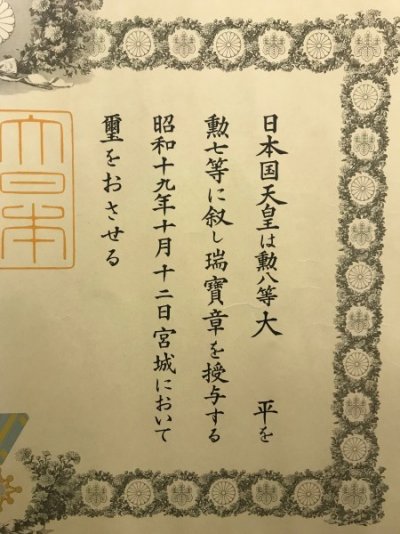 日本国天皇は勲八等大　平を
勲七等に叙し瑞寶章を授与する
昭和十九年十月十二日宮城において
璽をおさせる
大日本